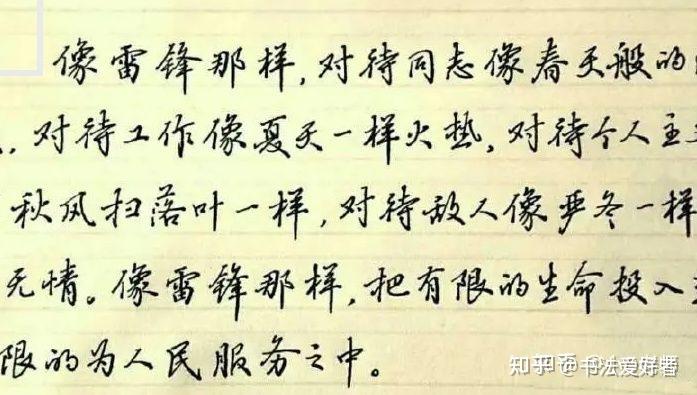 像雷锋那样,对待同志像春天般的
,对待工作像夏天一样火热,对待个人主
秋风扫落叶一样,对待敌人像严冬一样
无情。像雷锋那样,把有限的生命投入
限的为人民服务之中。
知乎 @书法爱好者